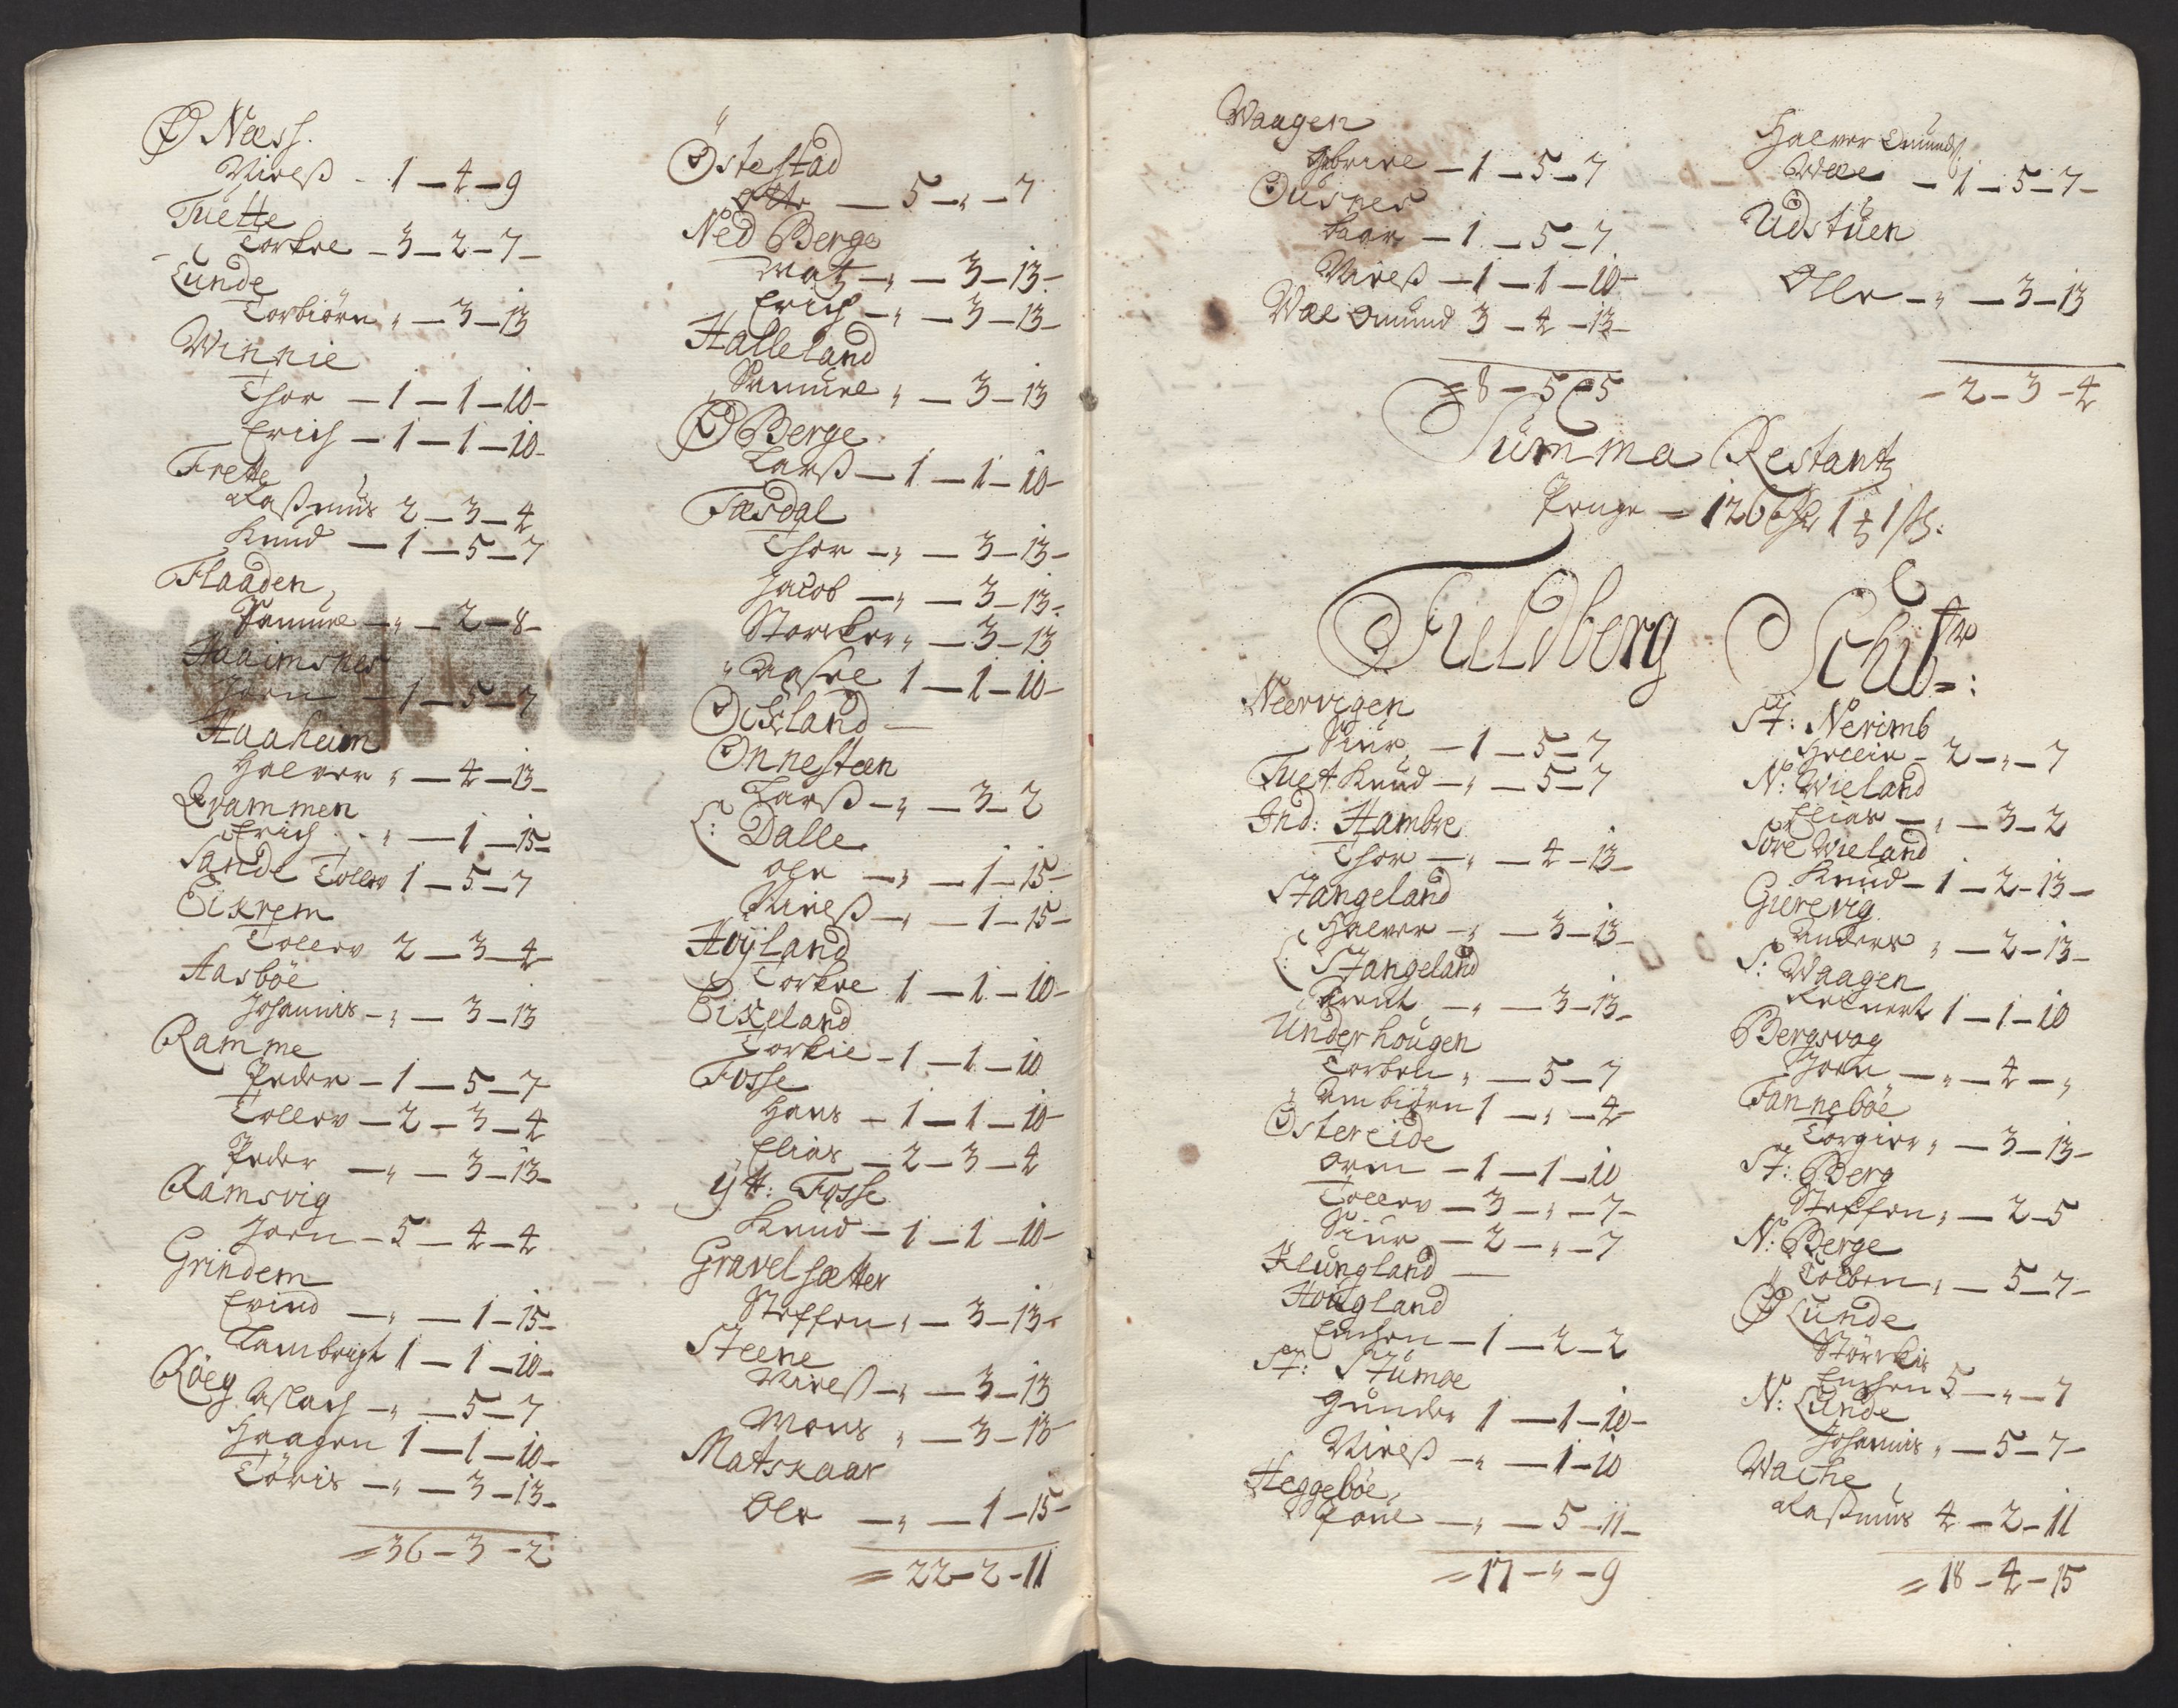 Ø Næss.
Nielß - 1 - 4 - 9
Tuette
Torkel - 3 - 2 - 7 -
Lunde
Torbiörn " - 3 - 13
Winnie
Thor - 1 - 1 - 10 -
Erich - 1 - 1 - 10 -
Frette
Raßmus 2 - 3 - 4
Knud - 1 - 5 - 7
Flaaden
Samuel - " - 2 - 8 -
Haaimsnes
Joen - 1 - 5 - 7
Haaheim
Halvor " - 4 - 13 -
Qvammen
Erich - " - 1 - 15 -
Sande Tollev 1 - 5 - 7
Eikrem
Tollev 2 - 3 - 4 -
Aasböe
Johannis - " - 3 - 13
Ramme
Peder - 1 - 5 - 7 -
Tollev - 2 - 3 - 4
Peder - " - 3 - 13 -
Ramsvig
Joen - 5 - 4 - 4
Grindem
Evind - " - 1 - 15 -
Lambrigt 1 - 1 - 10 -
Röeg Aslach - " - 5 - 7
Haagen 1 - 1 - 10 -
Töris - " - 3 - 13 -
= 36 - 3 - 2
Östestad
Otte - 5 - " - 7
Ned Berge
Matz - " - 3 - 13 -
Erich - " - 3 - 13 -
Halleland
Samuel " - 3 - 13
Ø Berge
Larß - 1 - 1 - 10 -
Fæsdal
Thor - " - 3 - 13 -
Jacob - " - 3 - 13 -
Storcker " - 3 - 13
" Aasel 1 - 1 - 10 -
Öckland -
Onnesteen
Larß - " - 3 - 2
L: Dalle
Ole - " - 1 - 15 -
Nielß - " - 1 - 15 -
Höyland
Torkel 1 - 1 - 10 -
Eikeland
Torkie - 1 - 1 - 10
Fosse
Hans - 1 - 1 - 10 -
Elias - 2 - 3 - 4
Ytt: Fosse
Knud - 1 - 1 - 10 -
Gravelsætter
Steffen " - 3 - 13 -
Steene
Nielß - " - 3 - 13
Mons " - 3 - 13 -
Matskaar
Ole - " - 1 - 15 -
= 22 - 2 - 11
Waagen
Gabriel - 1 - 5 - 7
Ousnes
Baar - 1 - 5 - 7
Nielß - 1 - 1 - 10 -
Wæe Omund 3 - 4 - 13 -
= 8 - 5 - 5
Halvor Omunds
Wæe - 1 - 5 - 7 -
Udstüen
Olle - " - 3 - 13
- 2 - 3 - 4
Summa Restantz
Penge - 126 Rdr 1 ʒ 1 ß:
Fueldberg Schibr:
Neervigen
Siur - 1 - 5 - 7
Tuet. Knud - " - 5 - 7
Ind: Hambre
Thor - " - 4 - 13 -
Stangeland
Halvor - " - 3 - 13 -
L: Stangeland
Arent - " - 3 - 13 -
Underhougen
Torben " - 5 - 7
" Ambiörn 1 - " - 4 -
Östereide
Orm - 1 - 1 - 10
Tollev - 3 - " - 7 -
Siur - 2 - " - 7
Klungland -
Hougland
Enchen - 1 - 2 - 2
St: Stumoe
Gunder 1 - 1 - 10 -
Nielß - " - 1 - 10
Heggeböe
Povel - " - 5 - 11 -
= 17 - " - 9
St: Nerimb
Helliv - 2 - " - 7
N: Wieland
Elias - " - 3 - 2
Söre Wieland
Knud - 1 - 2 - 13 -
Gierevig
Anders " - 2 - 13 -
S: Waagen
Reinert 1 - 1 - 10
Bergsvog
Joen - " - 4 - "
Fanneböe
Torgier " - 3 - 13 -
St: Berg
Steffen " - 2 - 5
N: Berge
Tolben " - 5 - 7 -
Ø Lunde
Störckis
Enchen 5 - " - 7
N: Lunde
Johannis " - 5 - 7 -
Wache
Raßmus 4 - 2 - 11
= 18 - 4 - 15